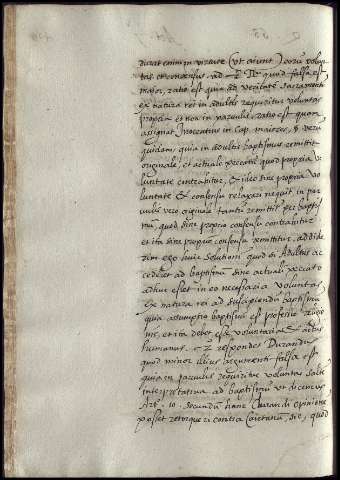 durat enim in virtute (ut aiunt) eorū volun
tas et consensus. ad 2m quod falsa est
maior, ratio est quia ad veritatē sacramenti
ex natura rei in adultis requiritur voluntas
propria et non in parvulis, ratio est quam
assignat Inocentius in cap. maiores, § verū
quidam, quia in adultis baptismus remittit
originale, et actuale peccatū quod propria vo
luntate contrahitur, & ideo sine propria vo
luntate & consensu relaxari nequit in par
vulis vero originale tantū remittit per baptis
mū, quod sine proprio consensu contrahitur
et ita sine proprio consensu remittitur. addide
rim ego huic solutioni quod si Adultus ac
cederet ad baptismū sine actuali peccato
adhuc esset in eo necessaria voluntas
Ex natura rei ad suscipiendū baptismū
quia assumptio baptismi est professio religio
nis, et ita debet esse voluntarius & actus
humanus. 2 respondet Durandus
quod minor illius argumenti falsa est
quia in parvulis requiritur voluntas saltē
interpretativa ad baptismū ut dicemus
Art. 10. secundū hanc Durandi opinionē
posset retorqueri contra Caietanū, sic, quod